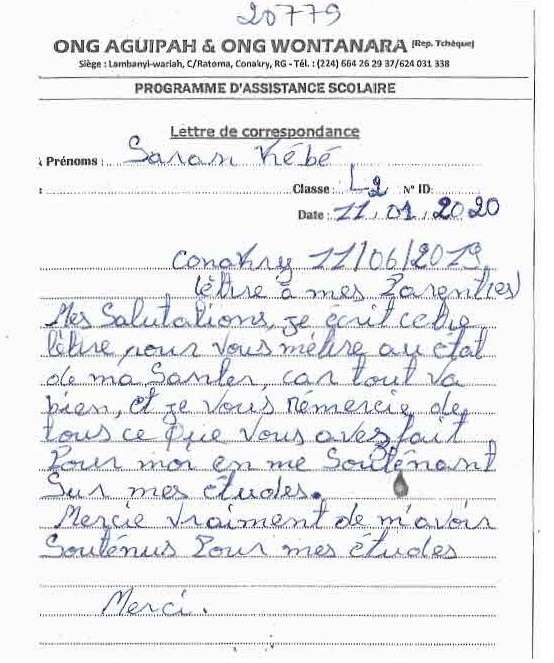 20779
ONG AGUIPAH & ONG WONTANARA (Rep. Tchèque)
Siège : Lambanyi-wariah, C/Ratoma, Conakry, RG - Tél. : (224) 664 26 29 37/624 031 338
PROGRAMME D'ASSISTANCE SCOLAIRE
Lettre de correspondance
& Prénoms : Saran Kébé
: Classe : L2 N° ID:
Date : 11.01.2020
Conakry 11/06/2019
lêttre à mes Parent(es)
Mes Salutations, je écrit cette
lêttre pour vous mêttre au état
de ma Santer, car tout va
bien, et je vous rémercie de
tous ce que vous avez fait
Pour moi en me Souténant
Sur mes études.
Mercie vraiment de m'avoir
Souténus Pour mes études
Merci.